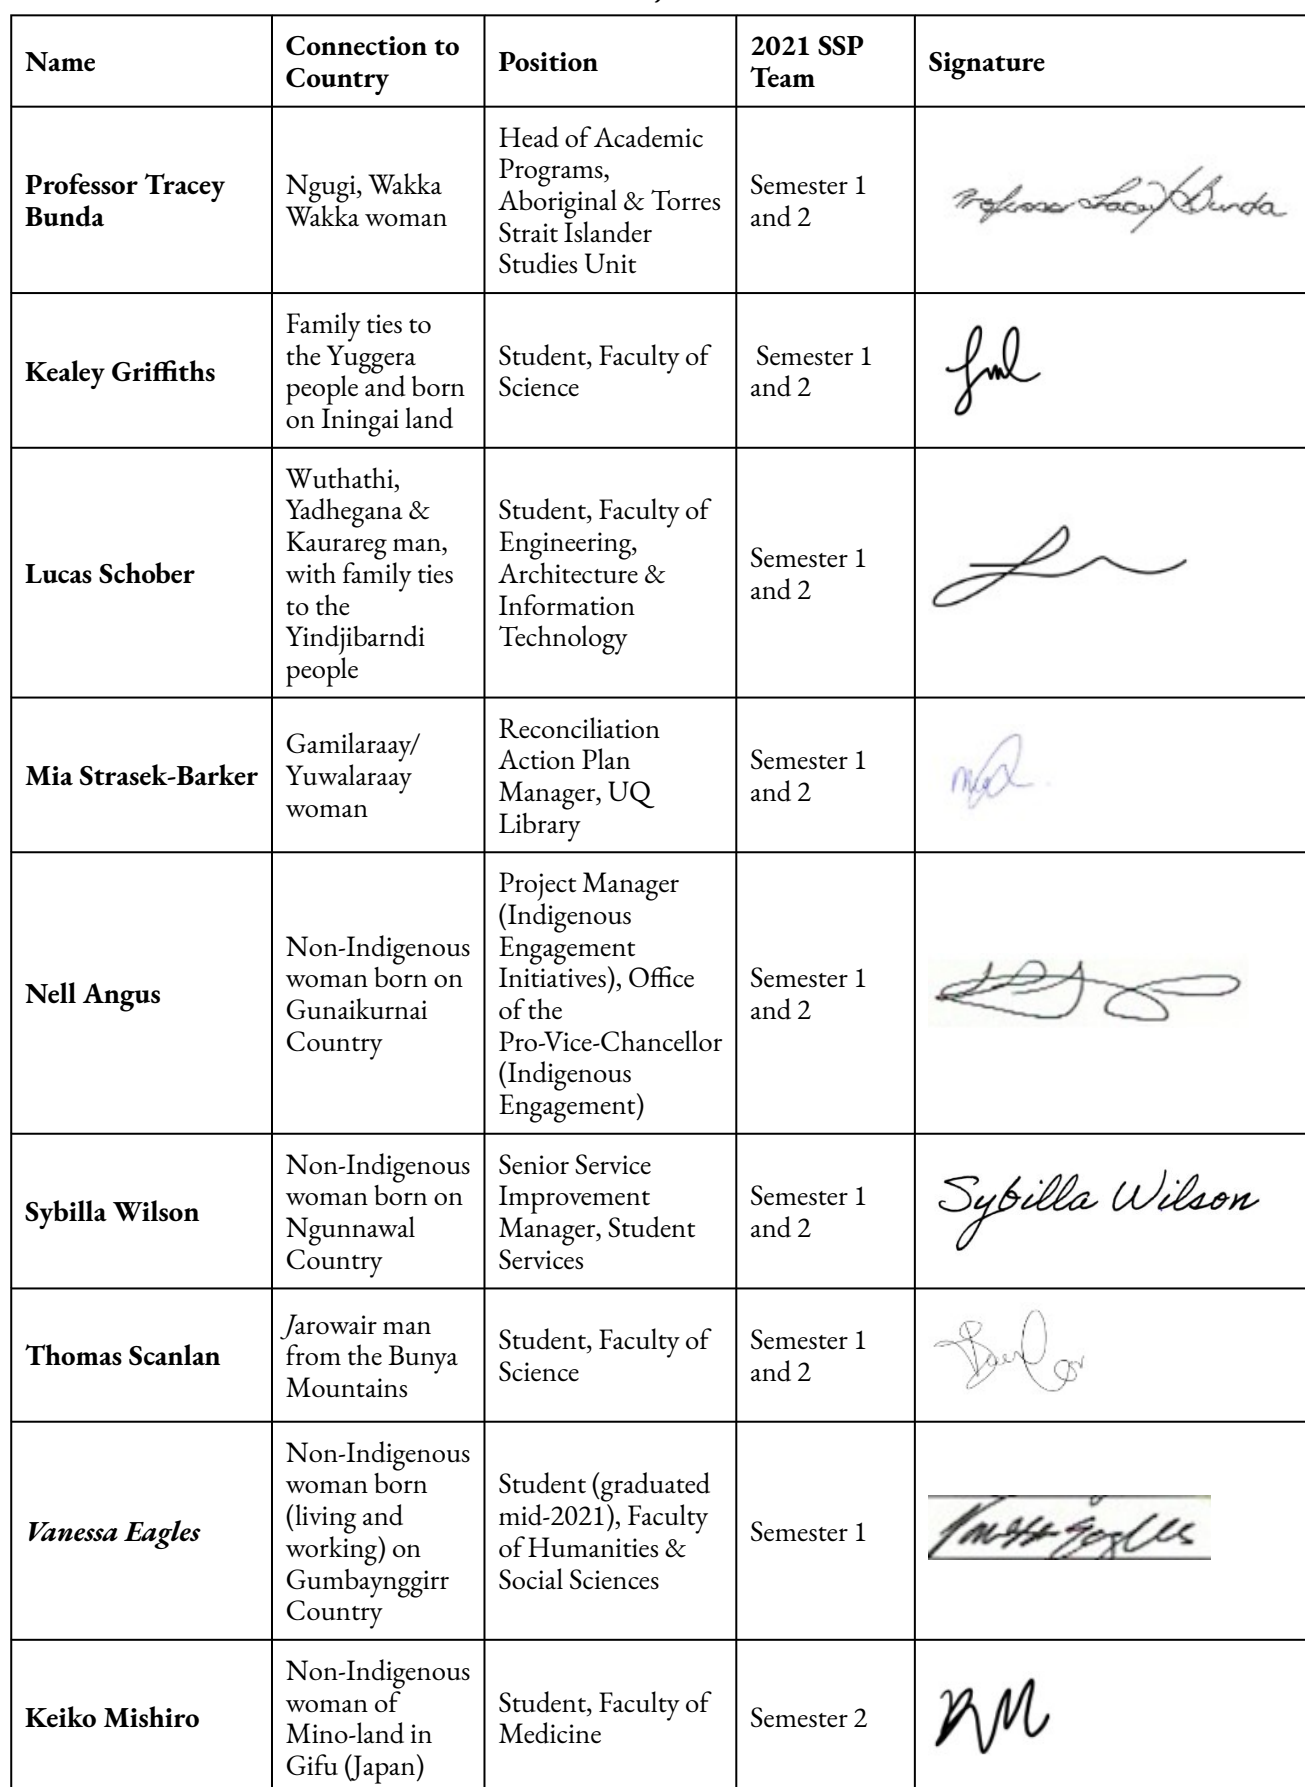 Name
Connection to
Country
Position
2021 SSP
Team
Signature
Professor Tracey
Bunda
Ngugi, Wakka
Wakka woman
Head of Academic
Programs,
Aboriginal & Torres
Strait Islander
Studies Unit
Semester 1
and 2
Professor Tracey Bunda
Kealey Griffiths
Family ties to
the Yuggera
people and born
on Iningai land
Student, Faculty of
Science
Semester 1
and 2
Lucas Schober
Wuthathi,
Yadhegana &
Kaurareg man,
with family ties
to the
Yindjibarndi
people
Student, Faculty of
Engineering,
Architecture &
Information
Technology
Semester 1
and 2
Mia Strasek-Barker
Gamilaraay/
Yuwalaraay
woman
Reconciliation
Action Plan
Manager, UQ
Library
Semester 1
and 2
Nell Angus
Non-Indigenous
woman born on
Gunaikurnai
Country
Project Manager
(Indigenous
Engagement
Initiatives), Office
of the
Pro-Vice-Chancellor
(Indigenous
Engagement)
Semester 1
and 2
Sybilla Wilson
Non-Indigenous
woman born on
Ngunnawal
Country
Senior Service
Improvement
Manager, Student
Services
Semester 1
and 2
Sybilla Wilson
Thomas Scanlan
Jarowair man
from the Bunya
Mountains
Student, Faculty of
Science
Semester 1
and 2
Vanessa Eagles
Non-Indigenous
woman born
(living and
working) on
Gumbaynggirr
Country
Student (graduated
mid-2021), Faculty
of Humanities &
Social Sciences
Semester 1
Vanessa Eagles
Keiko Mishiro
Non-Indigenous
woman of
Mino-land in
Gifu (Japan)
Student, Faculty of
Medicine
Semester 2
KM